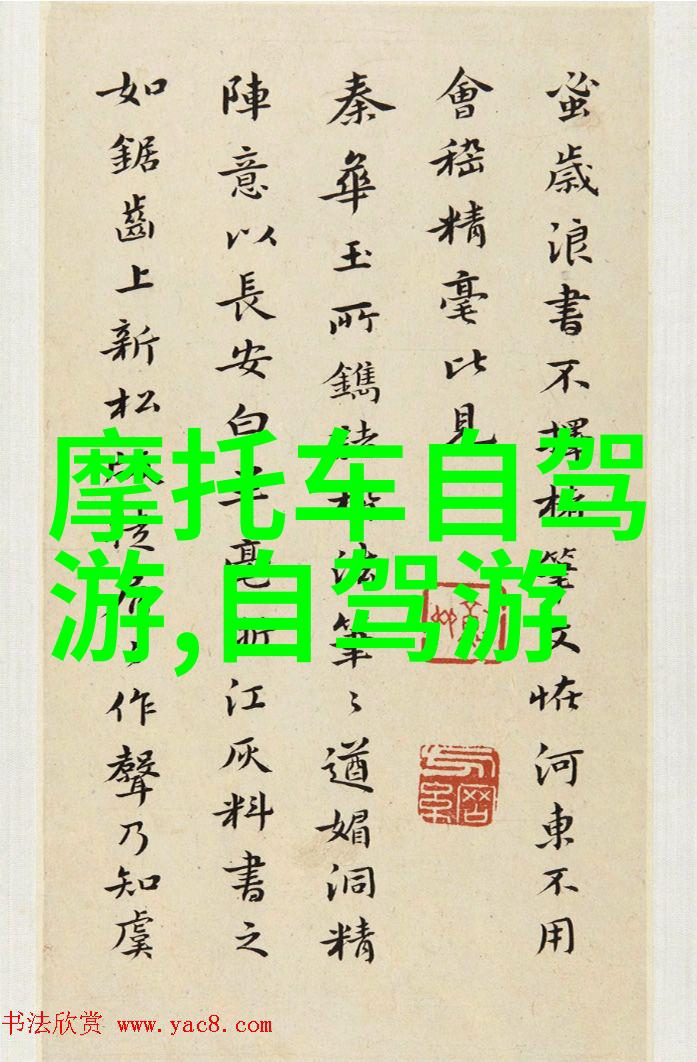 蚤歲浪書不擇筆又怪河東不用
會稽精毫比見
秦華玉所鐫法筆〻遒媚洞精
陣意以長安白毫江灰料書之
如鋸齒上新松作聲乃知虞
摩托车自驾
游,自驾游
书法欣赏 www.yac8.com